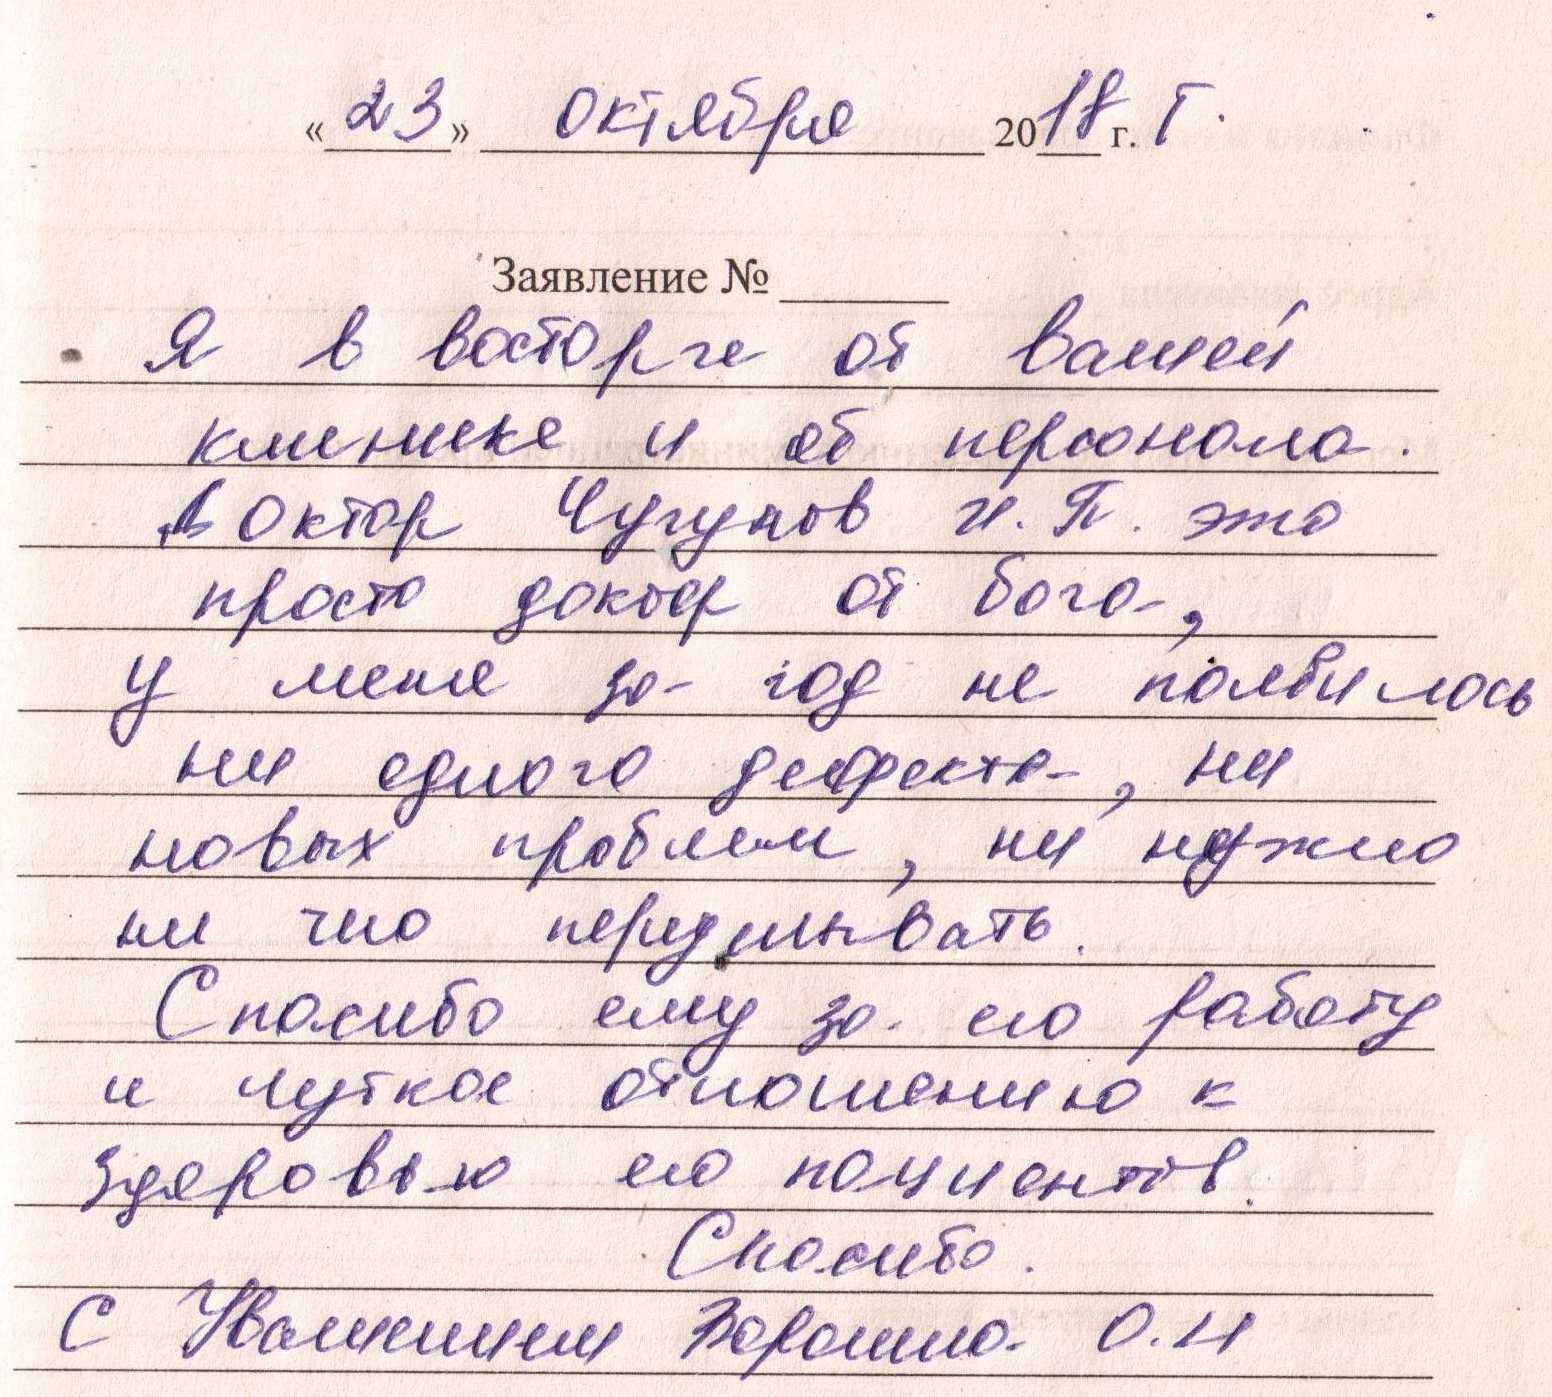 «23» октября 2018 г. г.
Заявление №
Я в восторге от вашей
клинике и об персонала.
Доктор Чугунов И.П. это
просто доктор от бога,
у меня за год не появилось
ни одного дефекта, ни
новых проблем, ни нужно
ни чего переделывать.
Спасибо ему за его работу
и чуткое отношению к
здоровью его пациентов.
Спасибо.
С Уважением О.Н